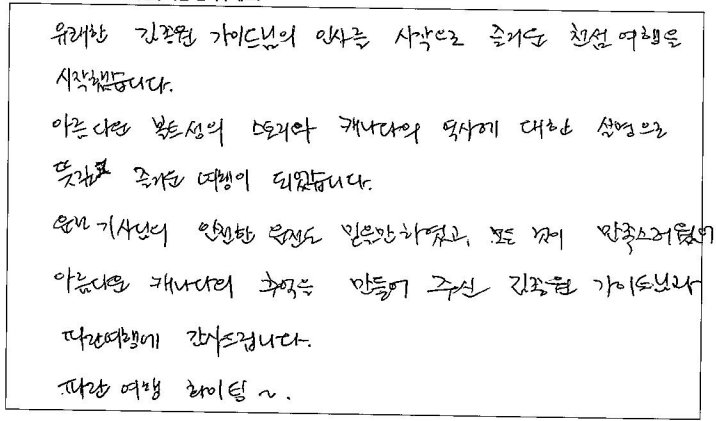 유쾌한 김종원 가이드님의 인사를 시작으로 즐거운 천섬 여행을
시작했습니다.
아름다운 볼트성의 스토리와 캐나다의 역사에 대한 설명으로
뜻깊고 즐거운 여행이 되었습니다.
운전기사님의 안전한 운전도 믿을만하였고, 모든 것이 만족스러웠으며
아름다운 캐나다의 추억을 만들어 주신 김종원 가이드님과
파란여행에 감사드립니다.
파란 여행 화이팅 ~.